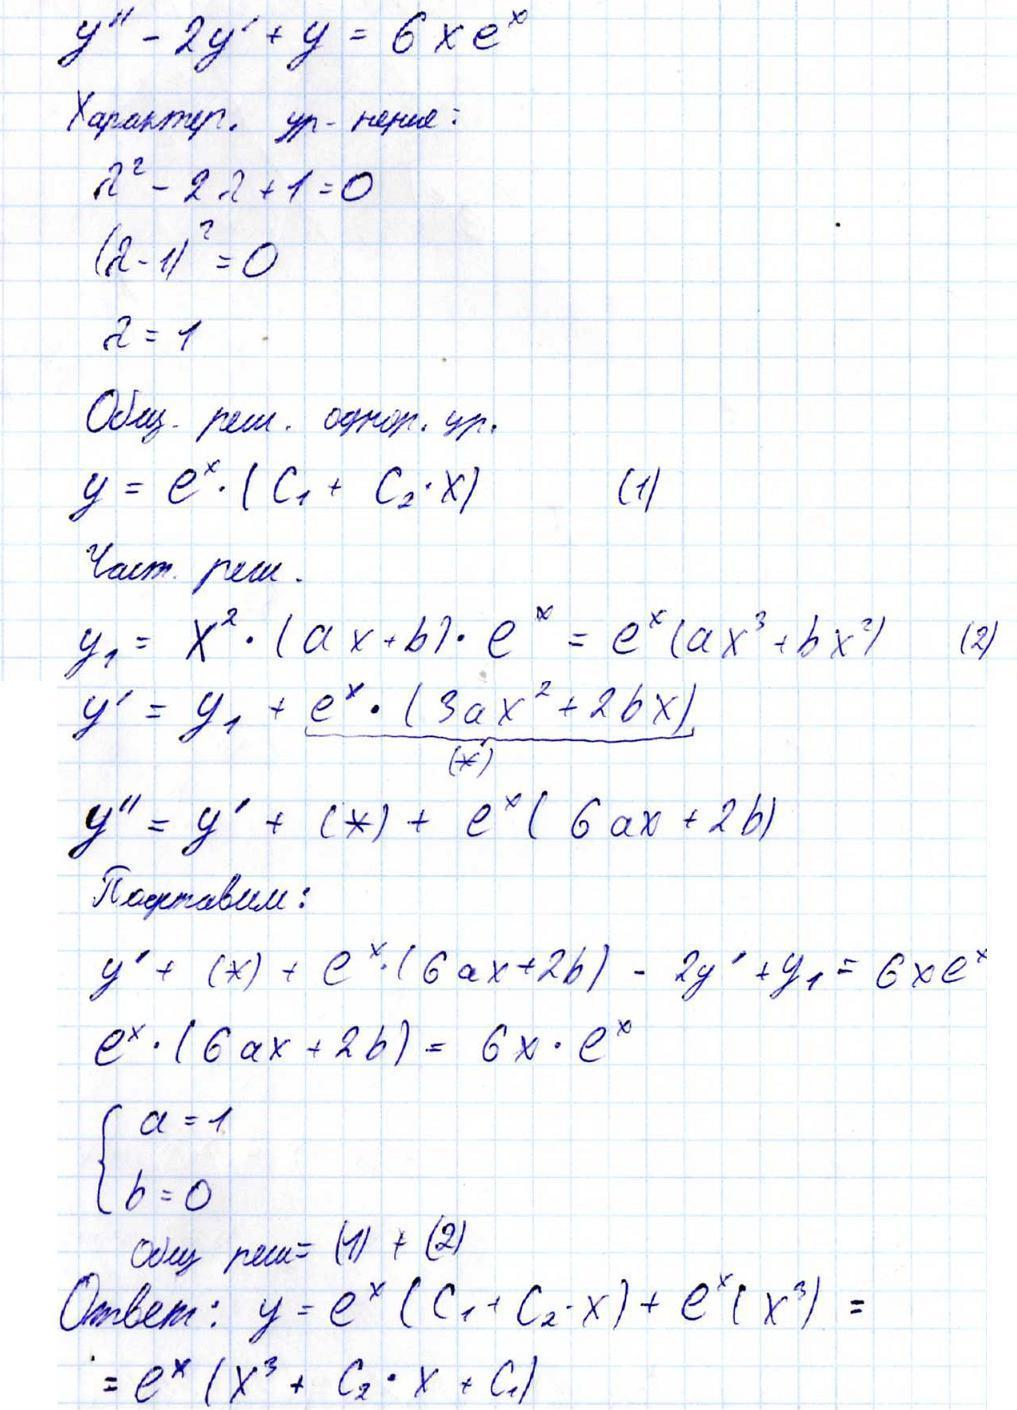 y'' - 2y' + y = 6xeˣ
Характер. ур-нение:
λ² - 2λ + 1 = 0
(λ - 1)² = 0
λ = 1
Общ. реш. однор. ур.
y = eˣ · (C₁ + C₂ · x) (1)
Част. реш.
y₁ = x² · (ax + b) · eˣ = eˣ(ax³ + bx²) (2)
y' = y₁ + eˣ · (3ax² + 2bx)
(*)
y'' = y' + (*) + eˣ(6ax + 2b)
Подставим:
y' + (*) + eˣ · (6ax + 2b) - 2y' + y₁ = 6xeˣ
eˣ · (6ax + 2b) = 6x · eˣ
{ a = 1
b = 0
Общ реш = (1) + (2)
Ответ: y = eˣ(C₁ + C₂ · x) + eˣ(x³) =
= eˣ(x³ + C₂ · x + C₁)